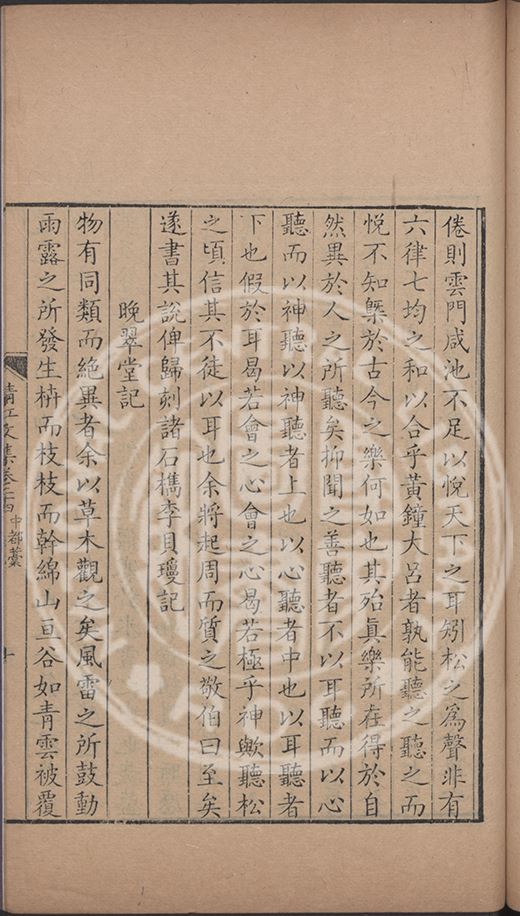 倦則雲門咸池不足以悅天下之耳矧松之爲聲非有
六律七均之和以合乎黃鐘大呂者孰能聽之聽之而
悅不知槩於古今之樂何如也其殆眞樂所在得於自
然異於人之所聽矣抑聞之善聽者不以耳聽而以心
聽而以神聽以神聽者上也以心聽者中也以耳聽者
下也假於耳曷若會之心會之心曷若極乎神歟聽松
之頃信其不徒以耳也余將起周而質之敬伯曰至矣
遂書其說俾歸刻諸石檇李貝瓊記
晚翠堂記
物有同類而絶異者余以草木觀之矣風雷之所鼓動
雨露之所發生枿而枝枝而幹綿山亘谷如青雲被覆
清江文集卷之十四 中都藁 十